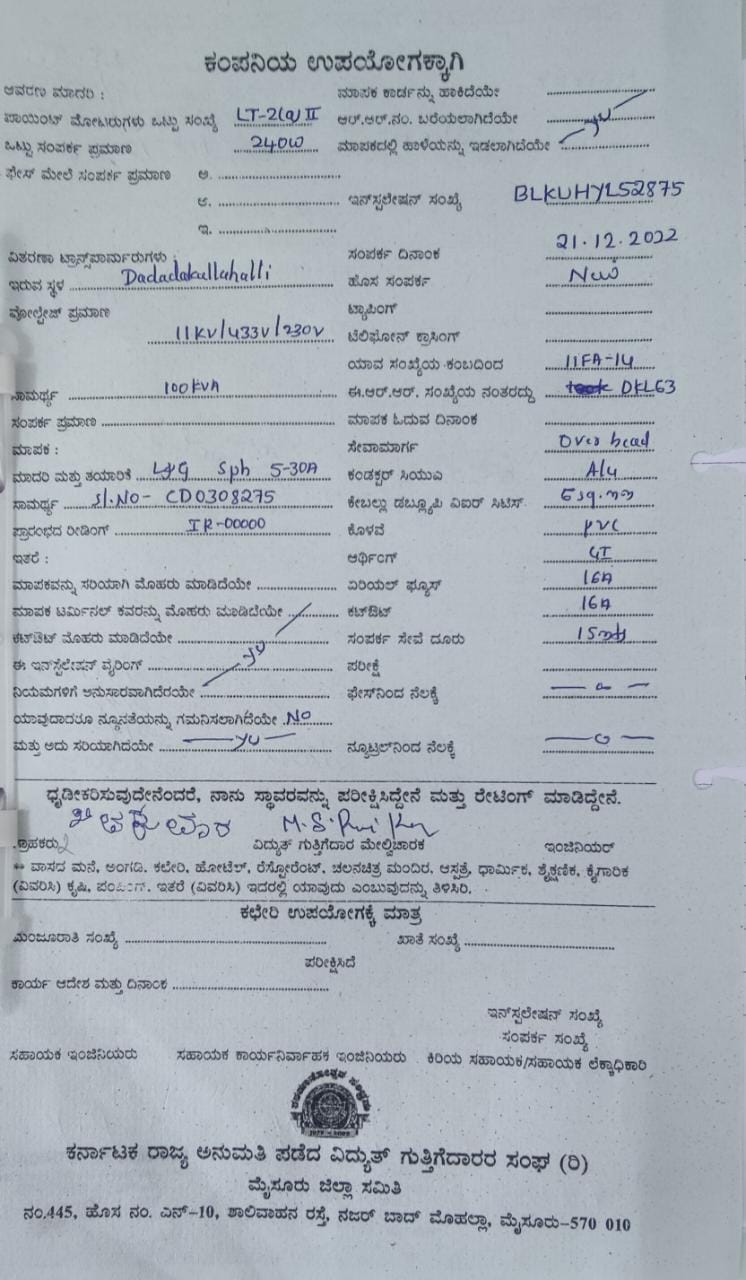 ಕಂಪನಿಯ ಉಪಯೋಗಕ್ಕಾಗಿ
ಆವರಣ ಮಾದರಿ : ಮಾಪಕ ಕಾರ್ಡನ್ನು ಹಾಕಿದೆಯೇ
ಪಾಯಿಂಟ್ ಮೋಟರುಗಳು ಒಟ್ಟು ಸಂಖ್ಯೆ LT-2(a) II ಆರ್.ಆರ್.ನಂ. ಬರೆಯಲಾಗಿದೆಯೇ
ಒಟ್ಟು ಸಂಪರ್ಕ ಪ್ರಮಾಣ 240W ಮಾಪಕದಲ್ಲಿ ಹಾಳೆಯನ್ನು ಇಡಲಾಗಿದೆಯೇ
ಫೇಸ್ ಮೇಲೆ ಸಂಪರ್ಕ ಪ್ರಮಾಣ ಅ.
ಆ. ಇನ್‌ಸ್ಟಲೇಷನ್ ಸಂಖ್ಯೆ BLKUHYL52875
ಇ.
ವಿತರಣಾ ಟ್ರಾನ್ಸ್‌ಪಾರ್ಮರುಗಳು : ಸಂಪರ್ಕ ದಿನಾಂಕ 21.12.2022
ಇರುವ ಸ್ಥಳ Dadadakallahalli ಹೊಸ ಸಂಪರ್ಕ New
ವೋಲ್ಟೇಜ್ ಪ್ರಮಾಣ ಟ್ಯಾಪಿಂಗ್
11KV/433V/230V ಟೆಲಿಫೋನ್ ಕ್ರಾಸಿಂಗ್
ಯಾವ ಸಂಖ್ಯೆಯ ಕಂಬದಿಂದ 11FA-14
ಸಾಮರ್ಥ್ಯ 100KVA ಈ.ಆರ್.ಆರ್. ಸಂಖ್ಯೆಯ ನಂತರದ್ದು DKL63
ಸಂಪರ್ಕ ಪ್ರಮಾಣ ಮಾಪಕ ಓದುವ ದಿನಾಂಕ
ಮಾಪಕ : ಸೇವಾಮಾರ್ಗ Over head
ಮಾದರಿ ಮತ್ತು ತಯಾರಿಕೆ L&G Sph 5-30A ಕಂಡಕ್ಟರ್ ಸಿಯುಎ Alu
ಸಾಮರ್ಥ್ಯ Sl.No- CD0308275 ಕೇಬಲ್ಲು ಡಬ್ಲ್ಯೂಪಿ ವಿಐರ್ ಸಿಟಿಸ್. 6 sq.mm
ಪ್ರಾರಂಭದ ರೀಡಿಂಗ್ IR-00000 ಕೊಳವೆ PVC
ಇತರೆ : ಆರ್ಥಿಂಗ್ GI
ಮಾಪಕವನ್ನು ಸರಿಯಾಗಿ ಮೊಹರು ಮಾಡಿದೆಯೇ ಏರಿಯಲ್ ಫ್ಯೂಸ್ 16A
ಮಾಪಕ ಟರ್ಮಿನಲ್ ಕವರನ್ನು ಮೊಹರು ಮಾಡಿದೆಯೇ ಕಟ್‌ಔಟ್ 16A
ಕಟ್‌ಔಟ್ ಮೊಹರು ಮಾಡಿದೆಯೇ ಸಂಪರ್ಕ ಸೇವೆ ದೂರು 15mts
ಈ ಇನ್‌ಸ್ಟೆಲೇಷನ್ ವೈರಿಂಗ್ ಪರೀಕ್ಷೆ
ನಿಯಮಗಳಿಗೆ ಅನುಸಾರವಾಗಿದೆರಯೇ ಫೇಸ್‌ನಿಂದ ನೆಲಕ್ಕೆ
ಯಾವುದಾದರೂ ನ್ಯೂನತೆಯನ್ನು ಗಮನಿಸಲಾಗಿದೆಯೇ NO
ಮತ್ತು ಅದು ಸರಿಯಾಗಿದೆಯೇ ನ್ಯೂಟ್ರಲ್‌ನಿಂದ ನೆಲಕ್ಕೆ
ಧೃಡೀಕರಿಸುವುದೇನೆಂದರೆ, ನಾನು ಸ್ಥಾವರವನ್ನು ಪರೀಕ್ಷಿಸಿದ್ದೇನೆ ಮತ್ತು ರೇಟಿಂಗ್ ಮಾಡಿದ್ದೇನೆ.
ಗ್ರಾಹಕರು ವಿದ್ಯುತ್ ಗುತ್ತಿಗೆದಾರ ಮೇಲ್ವಿಚಾರಕ ಇಂಜಿನಿಯರ್
** ವಾಸದ ಮನೆ, ಅಂಗಡಿ. ಕಲೇರಿ, ಹೋಟೆಲ್, ರೆಸ್ಟೋರೆಂಟ್, ಚಲನಚಿತ್ರ ಮಂದಿರ, ಆಸ್ಪತ್ರೆ, ಧಾರ್ಮಿಕ, ಶೈಕ್ಷಣಿಕ, ಕೈಗಾರಿಕ
(ವಿವರಿಸಿ) ಕೃಷಿ, ಪಂಪಿಂಗ್. ಇತರೆ (ವಿವರಿಸಿ) ಇದರಲ್ಲಿ ಯಾವುದು ಎಂಬುವುದನ್ನು ತಿಳಿಸಿರಿ.
ಕಛೇರಿ ಉಪಯೋಗಕ್ಕೆ ಮಾತ್ರ
ಮಂಜೂರಾತಿ ಸಂಖ್ಯೆ ಖಾತೆ ಸಂಖ್ಯೆ
ಪರೀಕ್ಷಿಸಿದೆ
ಕಾರ್ಯ ಆದೇಶ ಮತ್ತು ದಿನಾಂಕ
ಇನ್‌ಸ್ಟಲೇಷನ್ ಸಂಖ್ಯೆ
ಸಂಪರ್ಕ ಸಂಖ್ಯೆ
ಸಹಾಯಕ ಇಂಜಿನಿಯರು ಸಹಾಯಕ ಕಾರ್ಯನಿರ್ವಾಹಕ ಇಂಜಿನಿಯರು ಕಿರಿಯ ಸಹಾಯಕ/ಸಹಾಯಕ ಲೆಕ್ಕಾಧಿಕಾರಿ
ಕರ್ನಾಟಕ ರಾಜ್ಯ ಅನುಮತಿ ಪಡೆದ ವಿದ್ಯುತ್ ಗುತ್ತಿಗೆದಾರರ ಸಂಘ (ರಿ)
ಮೈಸೂರು ಜಿಲ್ಲಾ ಸಮಿತಿ
ನಂ.445, ಹೊಸ ನಂ. ಎನ್-10, ಶಾಲಿವಾಹನ ರಸ್ತೆ, ನಜರ್ ಬಾದ್ ಮೊಹಲ್ಲಾ, ಮೈಸೂರು-570 010